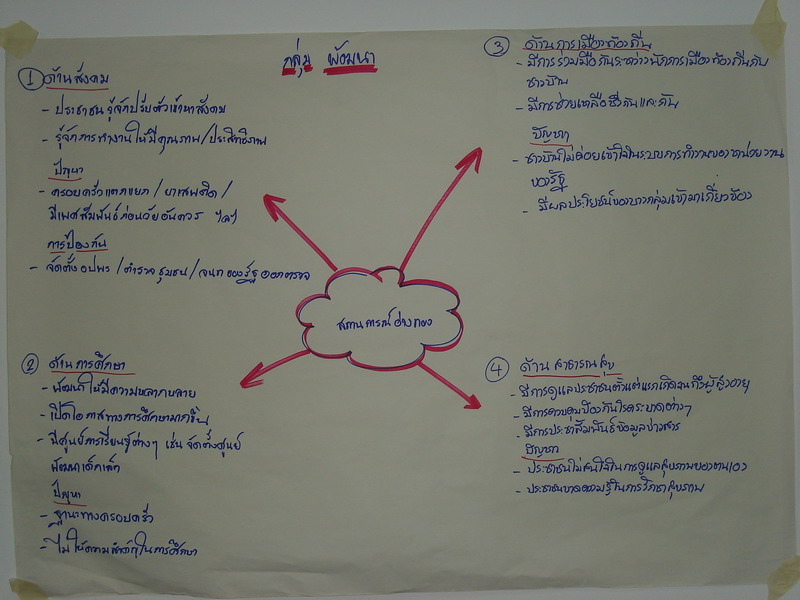 กลุ่ม พัฒนา
① ด้านสังคม
- ประชาชนรู้จักปรับตัวเข้าหาสังคม
- รู้จักการทำงานให้มีคุณภาพ/ประสิทธิภาพ
ปัญหา
- ครอบครัวแตกแยก / ยาเสพติด /
มีเพศสัมพันธ์ก่อนวัยอันควร
การป้องกัน
- จัดตั้งอปพร / ตำรวจชุมชน / จนท ของรัฐออกตรวจ
② ด้านการศึกษา
- พัฒนาให้มีความหลากหลาย
- เปิดโอกาสทางการศึกษามากขึ้น
- มีศูนย์การเรียนรู้ต่างๆ เช่น จัดตั้งศูนย์
พัฒนาเด็กเล็ก
ปัญหา
- ฐานะทางครอบครัว
- ไม่ให้ความสำคัญในการศึกษา
สถานการณ์อ่างทอง
③ ด้านการเมืองท้องถิ่น
- มีการรวมมือกันระหว่างนักการเมืองท้องถิ่นกับ
ชาวบ้าน
- มีการช่วยเหลือซึ่งกันและกัน
ปัญหา
- ชาวบ้านไม่ค่อยเข้าใจในระบบการทำงานของหน่วยงาน
ของรัฐ
- มีผลประโยชน์ของบางกลุ่มเข้ามาเกี่ยวข้อง
④ ด้านสาธารณสุข
- มีการดูแลประชาชนตั้งแต่แรกเกิดจนถึงผู้สูงอายุ
- มีการควบคุมป้องกันโรคระบาดต่างๆ
- มีการประชาสัมพันธ์ข้อมูลข่าวสาร
ปัญหา
- ประชาชนไม่สนใจในการดูแลสุขภาพของตนเอง
- ประชาชนขาดความรู้ในการรักษาสุขภาพ